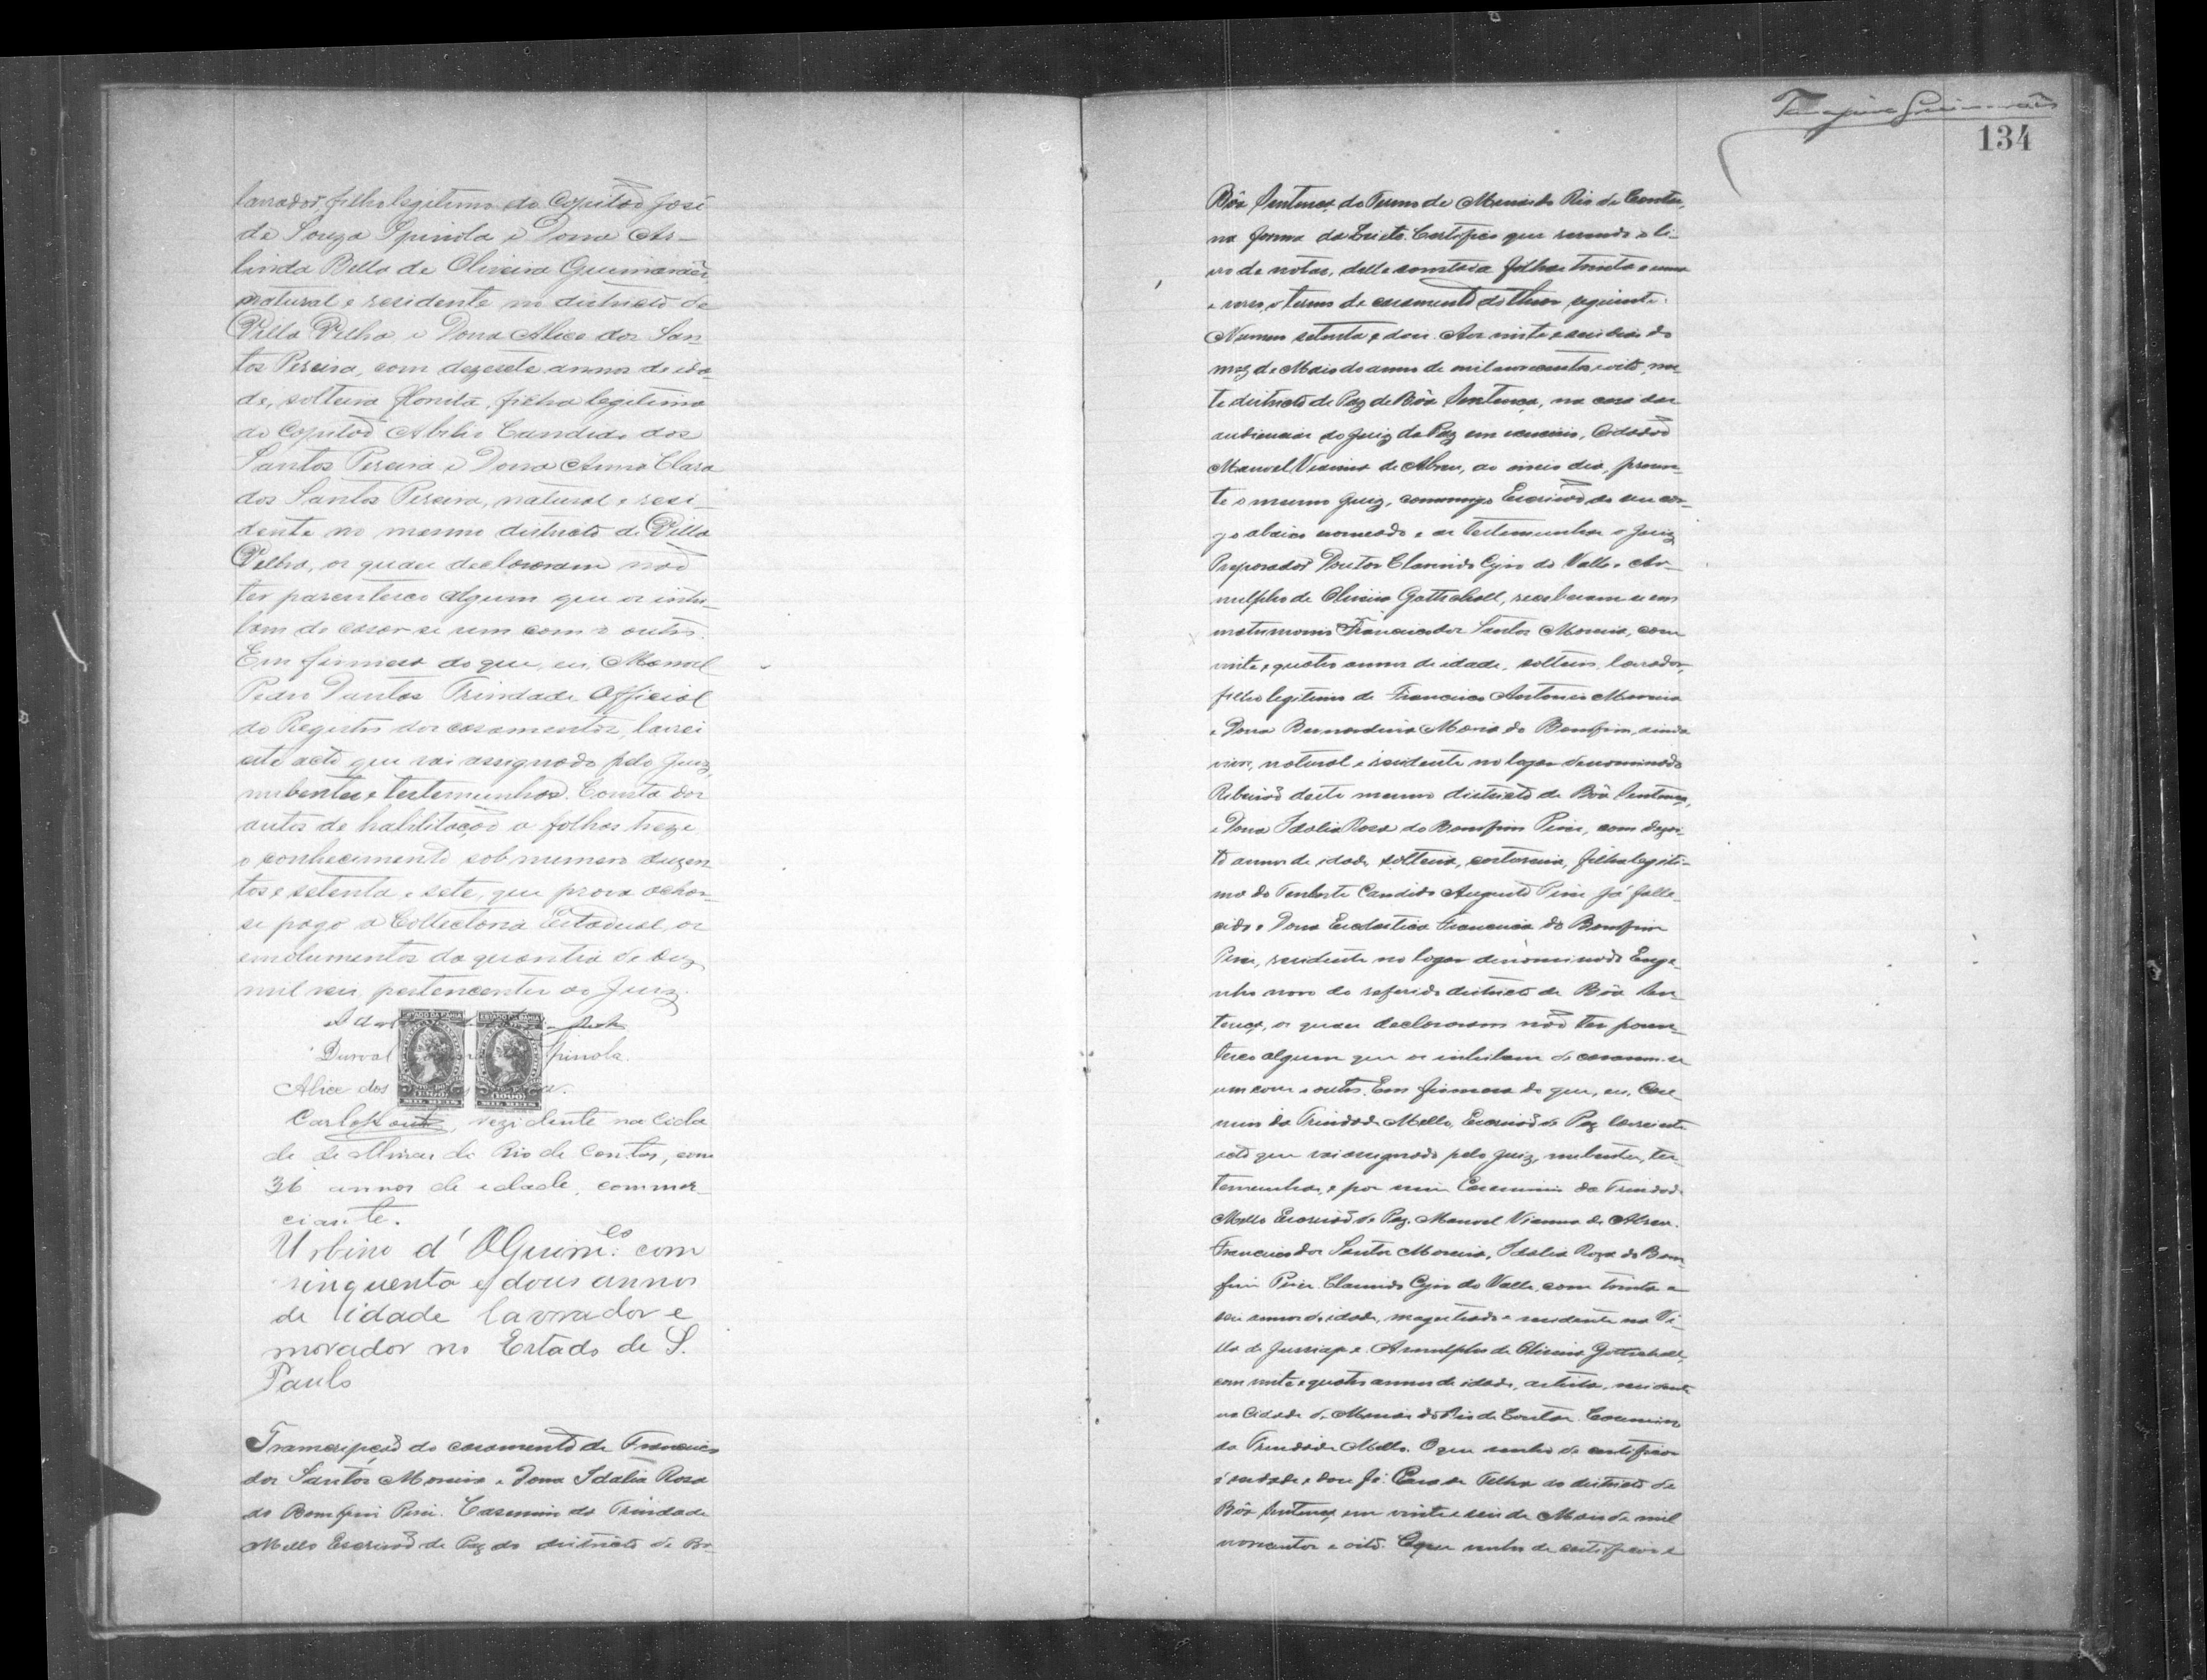 lavrador, filho legitimo do Capitão José
de Souza Spinola e Dona Ar-
linda Bella de Oliveira Guimarães
natural e residente no districto de
Villa Velha, e Dona Alice dos San-
tos Pereira, com dezesete annos de ida-
de, solteira, filha legitima
do Capitão Abilio Candido dos
Santos Pereira e Dona Anna Clara
dos Santos Pereira, natural e resi-
dente no mesmo districto de Villa
Velha, os quaes declararam não
ter parentesco algum que os inhi-
bam de casar-se um com o outro.
Em firmeza do que, eu, Manoel
Pedro Dantas Trindade Official
do Registro dos casamentos, lavrei
este acto que vai assignado pelo Juiz,
nubentes e testemunhas. Consta dos
autos de habilitação a folhas treze
o conhecimento sob numero duzen-
tos e setenta e sete, que prova achar-
se pago a Collectoria Estadual, os
emolumentos da quantia de dez
mil reis pertencentes ao Juiz.
ESTADO DA BAHIA ESTADO DA BAHIA
Durval Spinola.
Alice dos
1000 1000
MIL REIS MIL REIS
Carlos, rezidente na cida
de de Minas do Rio de Contas, com
36 annos de idade, commer-
ciante.
Urbino d' OGuim.es com
sinquenta e dous annos
de idade lavrador e
morador no Estado de S.
Paulo
Transcripção do casamento de Francisco
dos Santos Moreira e Dona Idalia Rosa
do Bomfim Pires. Casemiro da Trindade
Mello Escrivão de Paz do districto de Bô-
Guimarães
134
Bôa Sentença do Termo de Minas do Rio de Contas,
na forma da Lei etc. Certifico que revendo o li-
vro de notas, delle consta a folhas trinta e uma
e verso, o termo de casamento do theor seguinte:
Numero setenta e dois. Aos vinte e seis dias do
mez de Maio do anno de mil novecentos e oito, nes-
te districto de Paz de Bôa Sentença, na casa das
audiencias do Juiz de Paz em exercicio, Cidadão
Manoel Vianna de Abreu, ao meio dia, presen-
te o mesmo Juiz, commigo Escrivão do seu car-
go abaixo nomeado e as testemunhas o Juiz
Preparador Doutor Clarindo Cyro do Valle e Ar-
nulpho de Oliveira Gottschall, receberam-se em
matrimonio Francisco dos Santos Moreira, com
vinte e quatro annos de idade, solteiro, lavrador,
filho legitimo de Francisco Antonio Moreira
e Dona Bernardina Maria do Bomfim, ainda
vivos, natural e residente no logar denominado
Ribeirão deste mesmo districto de Bôa Sentença,
e Dona Idalia Rosa do Bomfim Pires, com dezoi-
to annos de idade, solteira, costureira, filha legiti-
ma do Tenente Candido Augusto Pires já falle-
cido e Dona Escolastica Francisca do Bomfim
Pires, residente no logar denominado Enge-
nho novo do referido districto de Bôa Sen-
tença, os quaes declararam não ter paren-
tesco algum que os inhibam de casarem-se
um com o outro. Em firmeza do que, eu, Case-
miro da Trindade Mello, Escrivão de Paz lavrei este
acto que vai assignado pelo Juiz, nubentes, tes-
temunhas, e por mim Casemiro da Trindade
Mello Escrivão de Paz. Manoel Vianna de Abreu.
Francisco dos Santos Moreira, Idalia Roza do Bom
fim Pires. Clarindo Cyro do Valle, com trinta e
seis annos de idade, magistrado e residente na Vi-
lla de Jussiape e Arnulpho de Oliveira Gottschall,
com vinte e quatro annos de idade, artista, residente
na Cidade de Minas do Rio de Contas. Casemiro
da Trindade Mello. O que venho de certificar
é verdade e dou fé. Casa de Telha do districto de
Bôa Sentença em vinte e seis de Maio de mil
novecentos e oito. E que venho de certificar e